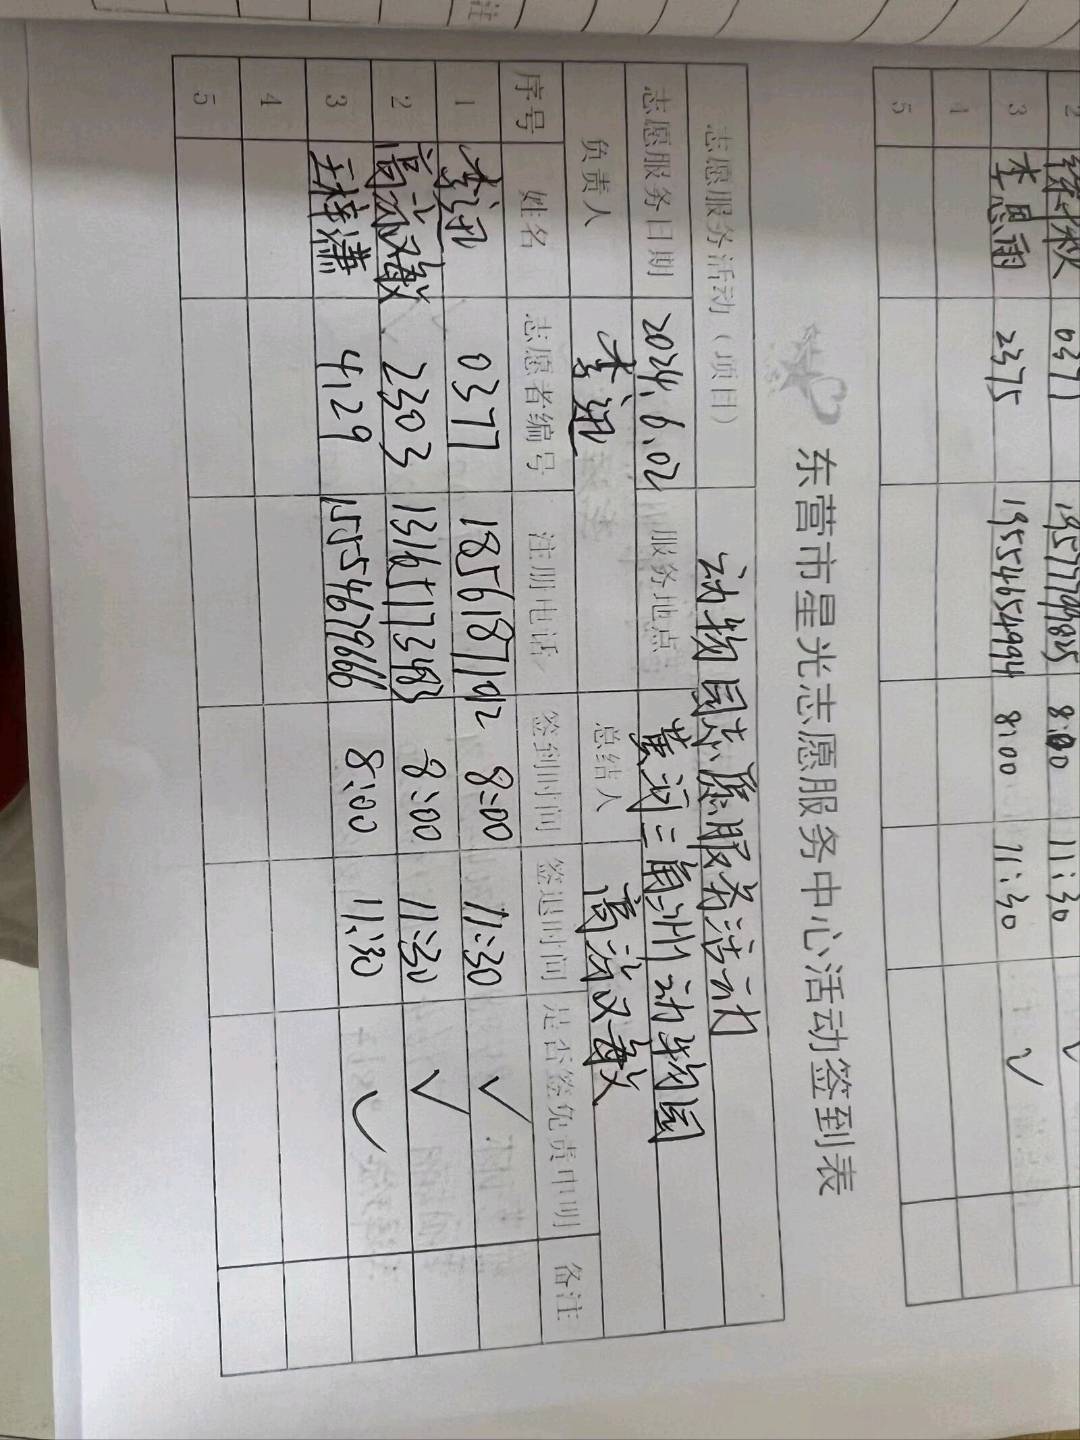 注
2
0377
19577799805
8:00
11:30
✓
3
李恩雨
2375
19554654994
8:00
11:30
✓
4
5
东营市星光志愿服务中心活动签到表
志愿服务活动（项目） 动物园志愿服务活动
志愿服务日期 2024.6.02 服务地点 黄河三角洲动物园
负责人 总结人 高汝敏
序号 姓名 志愿者编号 注册电话 签到时间 签退时间 是否签免责申明 备注
1 0377 18561871192 8:00 11:30 ✓
2 高汝敏 2303 13165173483 8:00 11:30 ✓
3 王梓潇 4129 15554679666 8:00 11:30 ✓
4
5